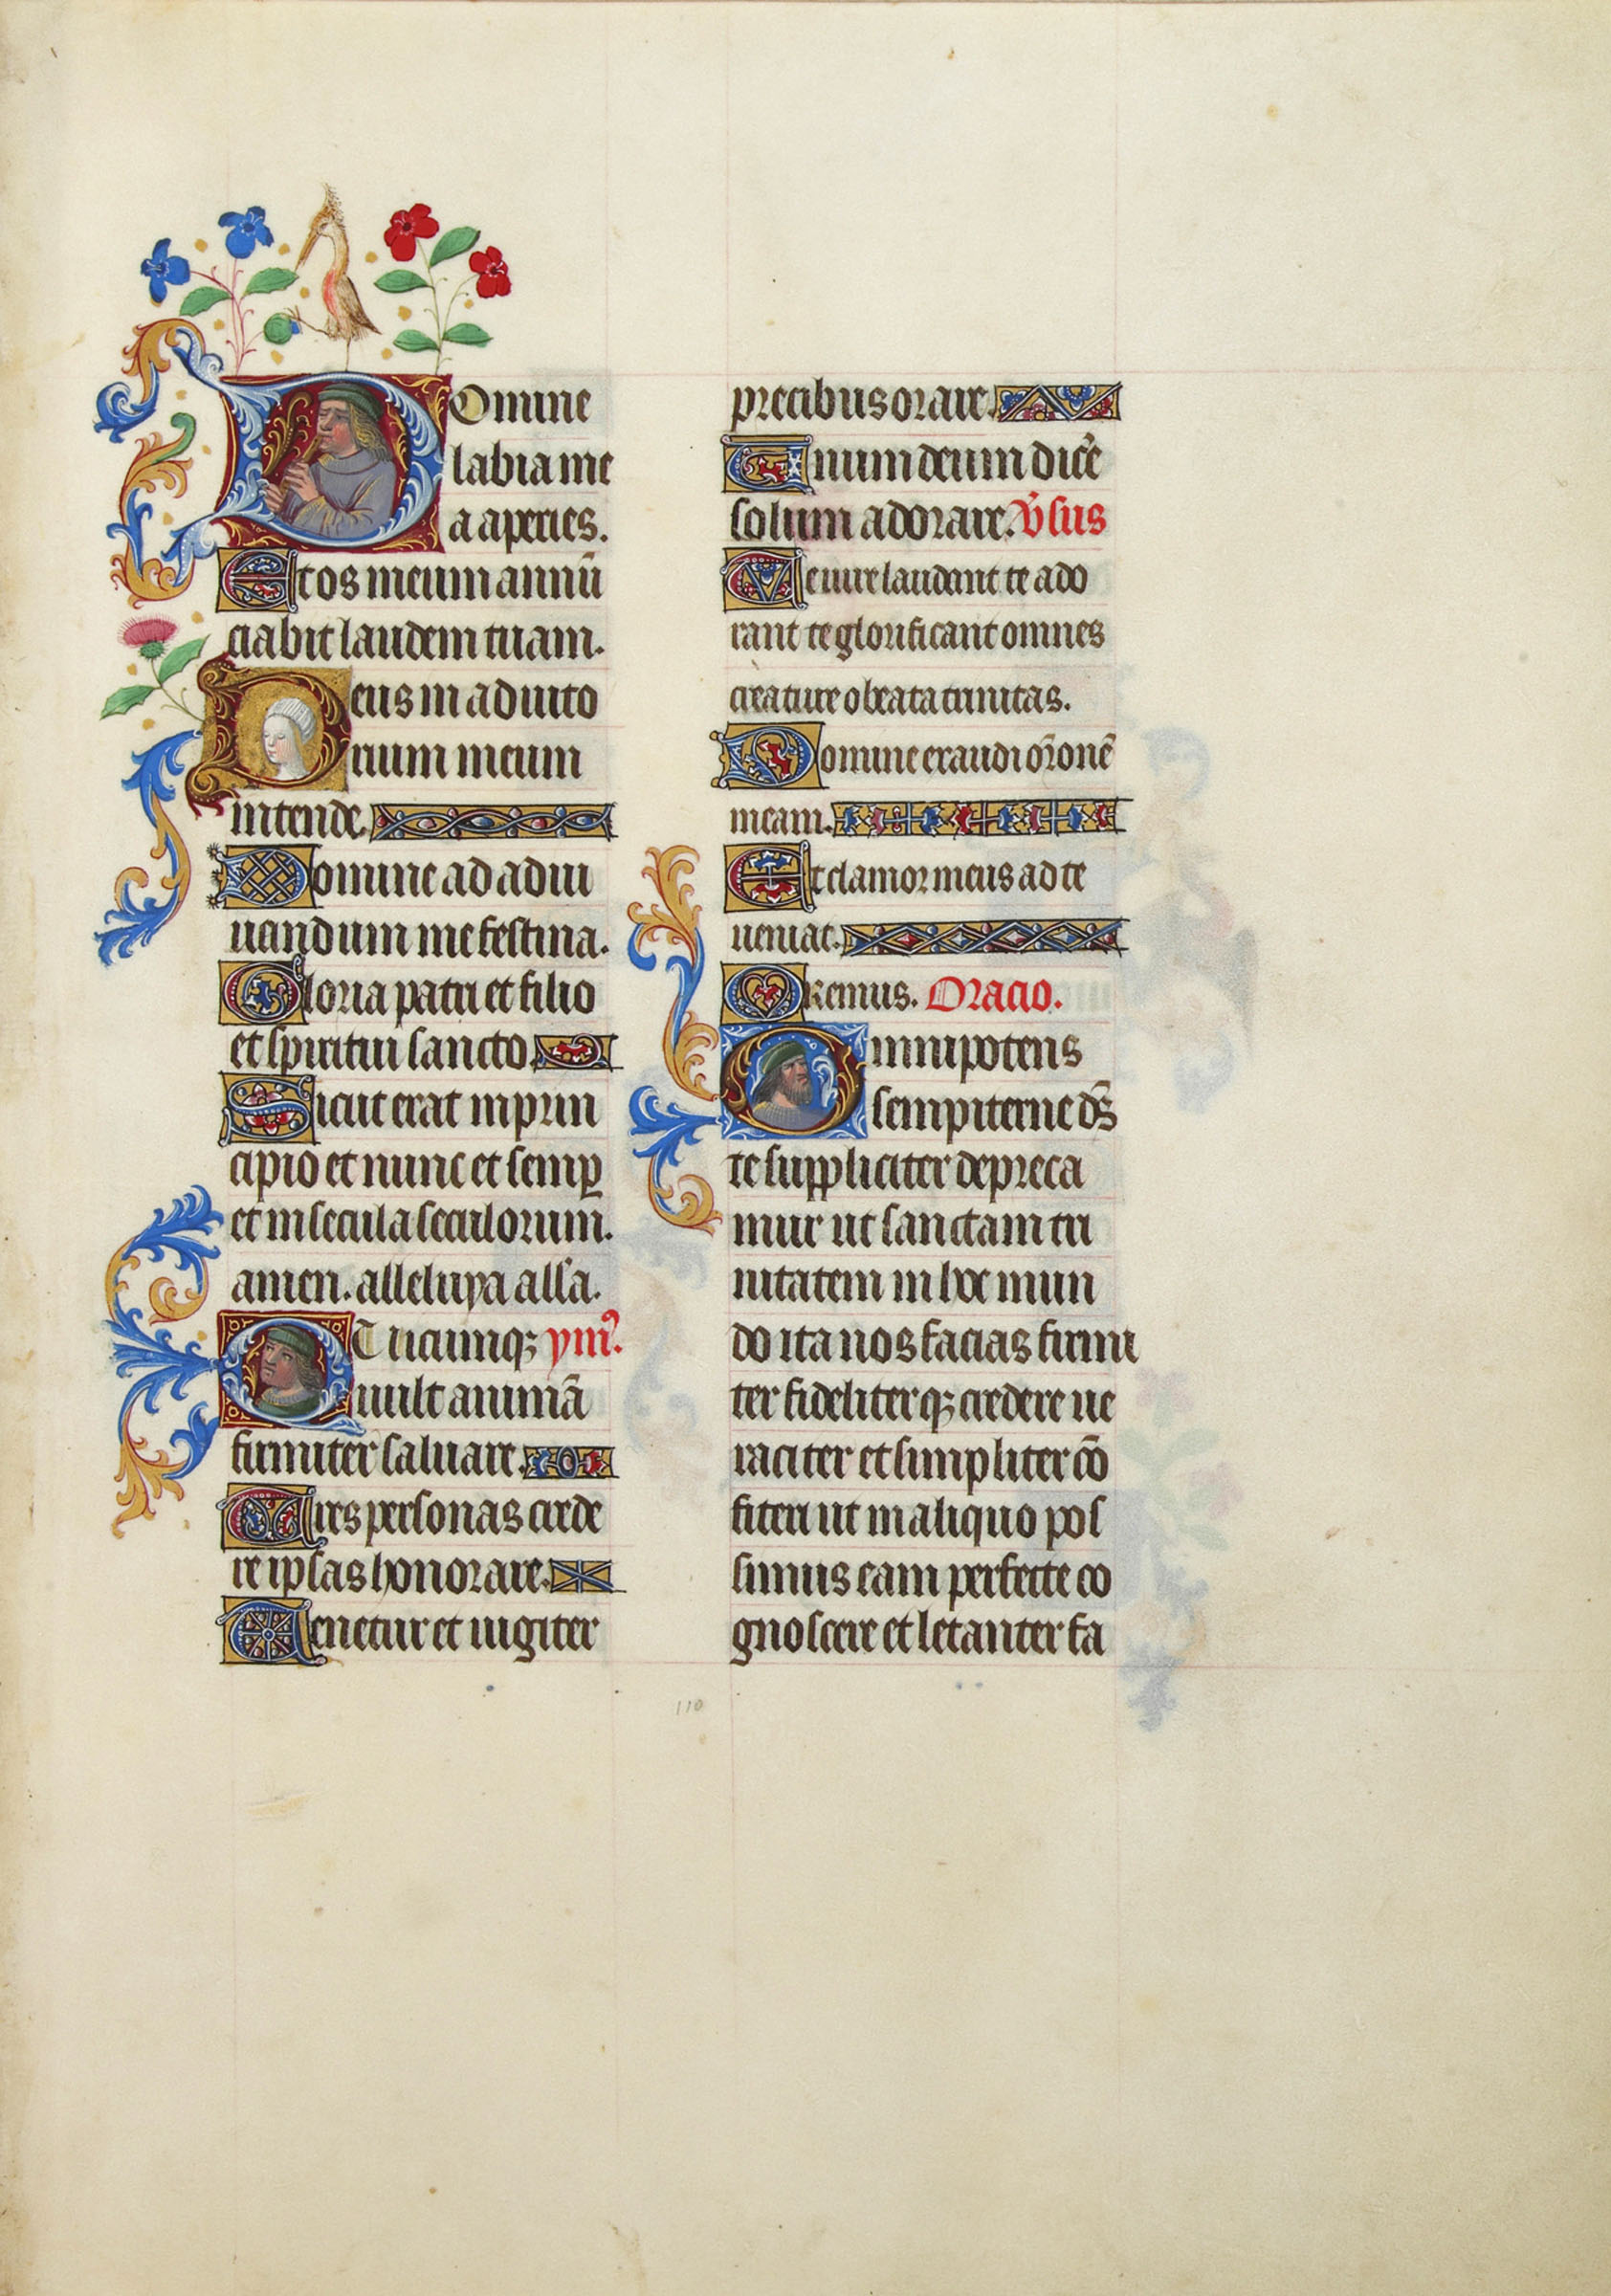 Domine
labia me
a aperies.
Et os meum annu̅
ciabit laudem tuam.
Deus in adiuto
rium meum
intende.
Domine ad adiu
uandum me festina.
Gloria patri et filio
et spiritui sancto.
Sicut erat in prin
cipio et nunc et semp̲
et in secula seculorum.
amen. alleluya alla.
Quicumqꝫ ym̅.
uult anima̅
firmiter saluare.
Tres personas crede
re ipsas honorare.
Tenetur et iugiter
precibus orare.
Unum deum dic̅e
solum adorare. V̅sus
Te iure laudant te ado
rant te glorificant omnes
creature o beata trinitas.
Domine exaudi or̅one̅
meam.
Et clamor meus ad te
ueniat.
Oremus. Oracio.
Omnipotens
sempiterne ds̅
te suppliciter depreca
mur ut sanctam tri
nitatem in hoc mun
do ita nos facias firmi
ter fideliterqꝫ credere ue
raciter et simpliter co̅
fiteri ut in aliquo pos
simus eam perfecte co
gnoscere et letanter fa
110